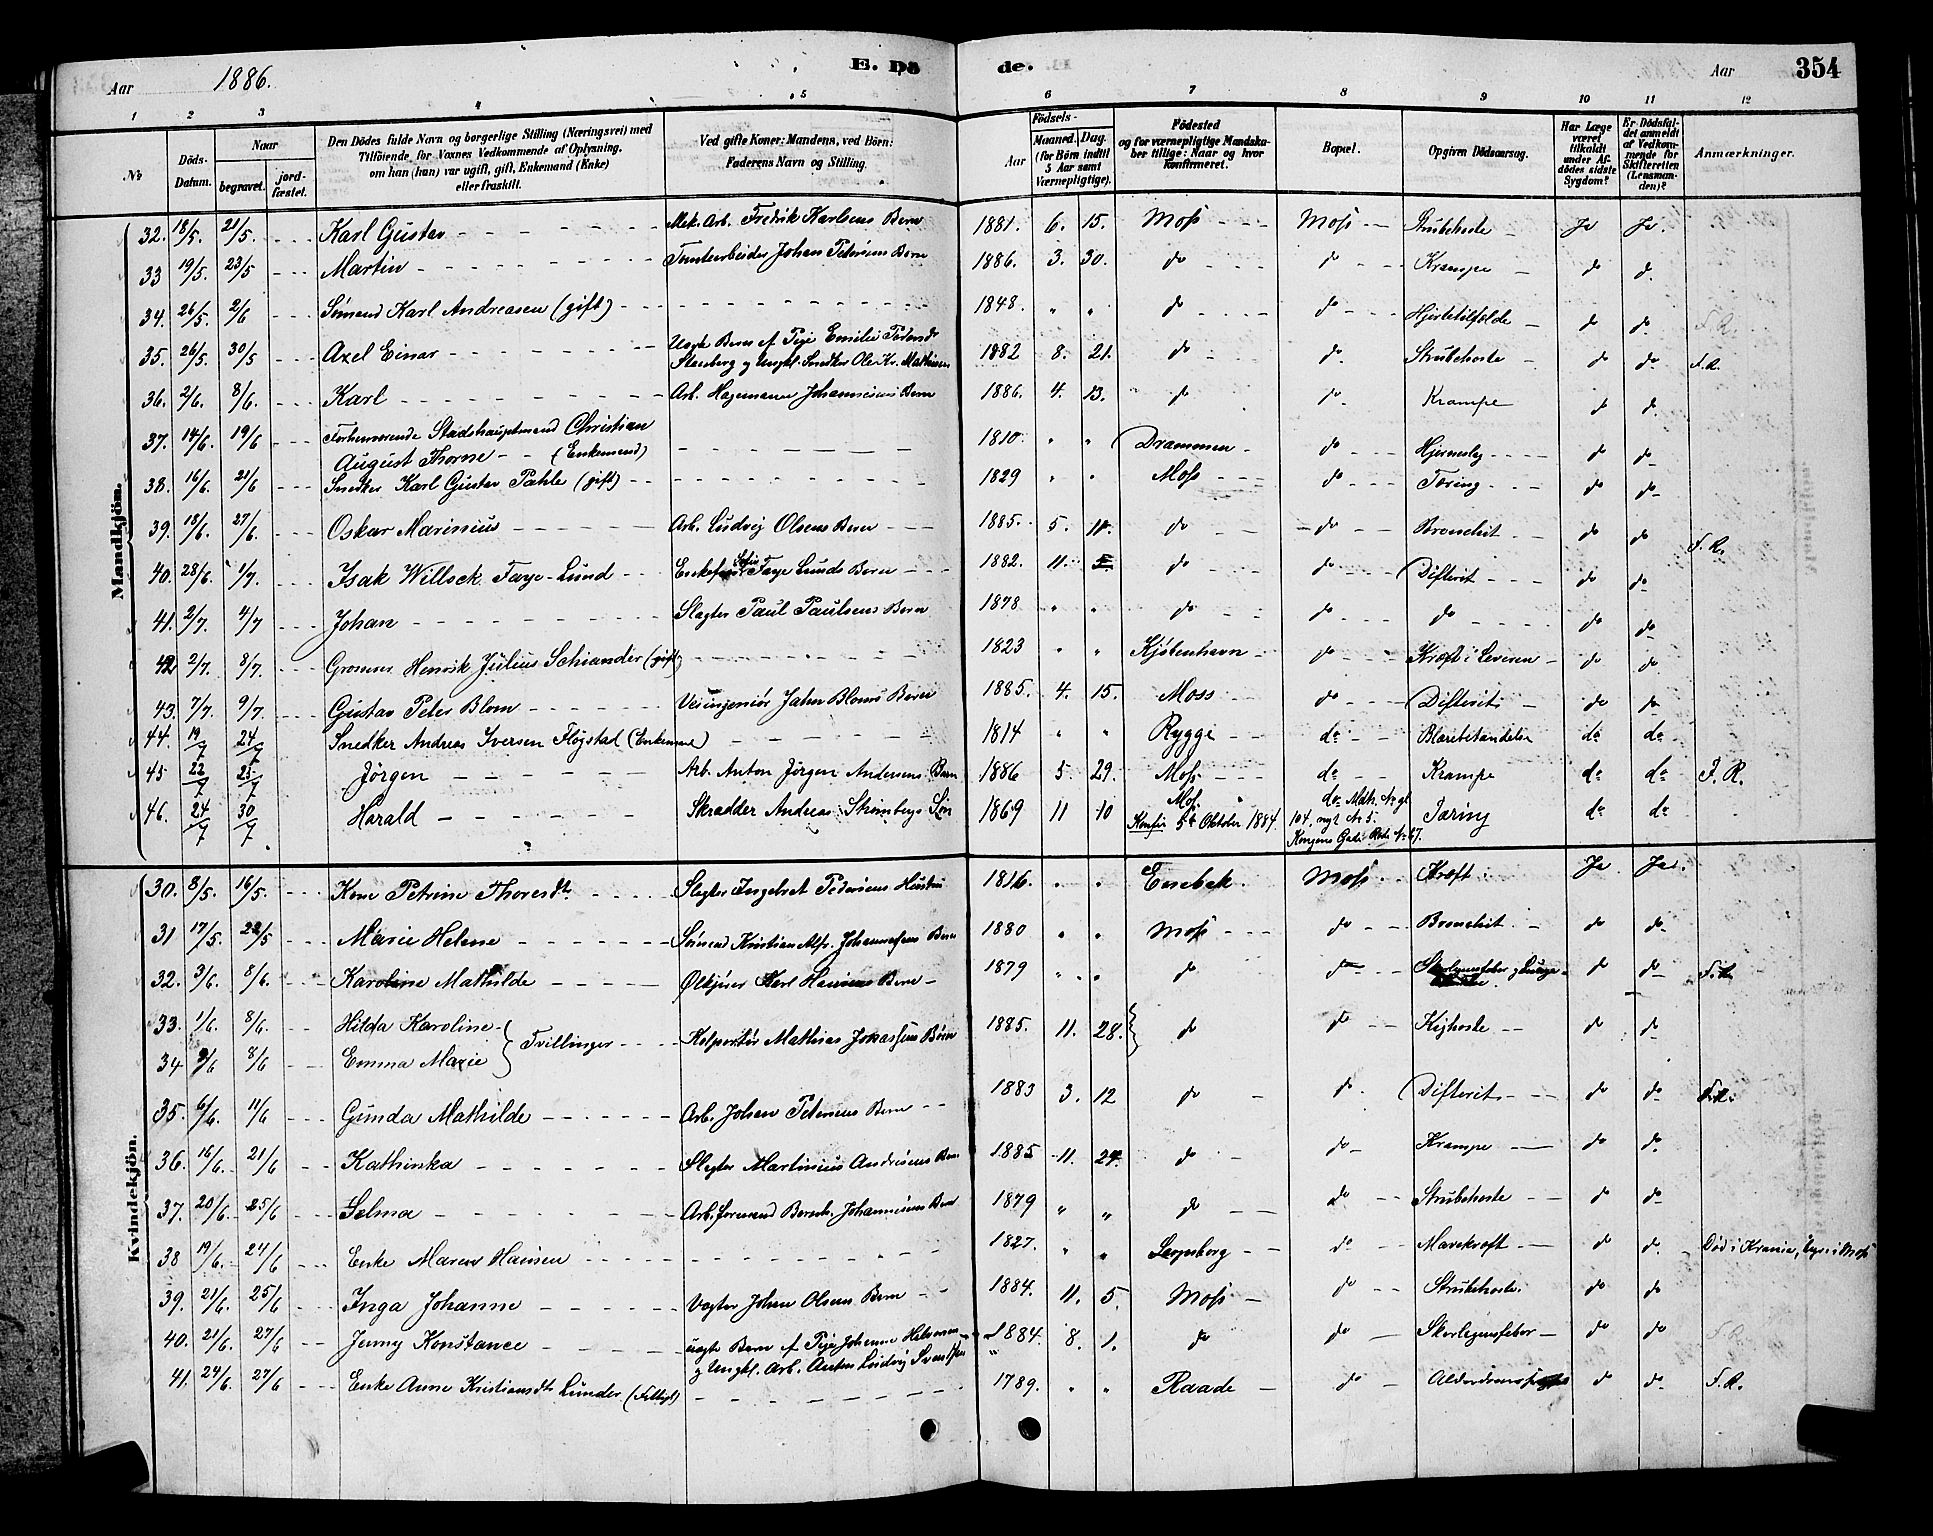 Aar 1886. E. Dö de. Aar 354
1 2 3 4 5 6 7 8 9 10 11 12
No Döds-Datum. Naar begravet. jord-fæstet. Den Dödes fulde Navn og borgerlige Stilling (Næringsvei) med Tilföiende for Voxnes Vedkommende af Oplysning, om han (hun) var ugift, gift, Enkemand (Enke) eller fraskilt. Ved gifte Koner: Mandens, ved Börn: Faderens Navn og Stilling. Födsels- Aar Maaned. Dag. (for Börn indtil 5 Aar samt Værnepligtige). Födested og for værnepligtige Mandskaber tillige: Naar og hvor konfirmeret. Bopæl. Opgiven Dödsaarsag. Har Læge været tilkaldt under Afdödes sidste Sygdom? Er Dödsfaldet anmeldt af Vedkommende for Skifteretten (Lensmanden)? Anmærkninger.
Mandkjön.
32. 18/5. 21/5. Karl Gustav Mek. Arb. Fredrik Karlsens Barn 1881. 6. 15. Moss Moss Strubehoste Ja Ja.
33 19/5. 23/5 Martin Tomtearbeider Johan Petersens Barn 1886. 3. 30. do do Krampe do do
34. 26/5. 2/6 Sömand Karl Andreasen (gift) 1848. " " do do Hjertetilfælde do do F. R.
35. 26/5. 30/5 Axel Einar Uægte Barn af Pige Emilie Petersdr Stenberg og Ungkl. Snedker Ole Kr. Mathisen 1882 8. 21. do do Strubehoste do do F. R.
36. 2/6. 8/6. Karl Arb. Hagemann Johannesens Barn 1886. 4. 13. do do Krampe do do
37. 14/6. 19/6 Forhenværende Stadshauptmand Christian August Thorne (Enkemand) 1810. " " Drammen do Hjerneslag do do
38. 16/6. 21/6 Snedker Karl Gustav Pahle (gift) 1829 " " Moss do Tæring do do
39. 18/6. 27/6. Oskar Marinius Arb. Ludvig Olsens Barn 1885. 5. 11. do do Bronchit do do F. R.
40. 28/6. 1/7. Isak Willock Faye-Lund Enkefru Sofie Faye Lunds Barn 1882. 11. do do Difterit do do
41. 2/7. 4/7 Johan Slagter Paul Paulsens Barn 1878 " " do do do do do
42 2/7. 8/7. Henrik Julius Schiander (gift) 1823 " " Kjöbenhavn do Kræft i Leveren do do
43. 7/7. 9/7. Gustav Peter Blom Veiingeniör Jahn Bloms Barn 1885. 4. 15. Moss do Difterit do do
44. 19/7 24/7 Snedker Andreas Iversen Flögstad (Enkemand) 1814 " " Rygge do Blærebetændelse do do
45 22/7 25/7 Jörgen Arb. Anton Jörgen Andersens Barn 1886 5. 29. Moss do Krampe do do F. R.
46. 24/7 30/7 Harald Skrædder Andreas Strömbergs Sön 1869 11 10 Moss. Konfir. 5te Oktober 1884. do Matr. No gl. 104, nyt No 5. Kongens Gade Rode No 67. Tæring do do
Kvindekjön.
30. 8/5. 16/5. Kone Petrine Thoresdt. Slagter Ingebret Pedersens Hustru 1816. " " Enebak. Moss Kræft Ja Ja.
31 17/5. 22/5 Marie Helene Sömand Kristian Alfr. Johannesens Barn 1880 " " Moss do Bronchit do do
32. 3/6. 8/6. Karoline Mathilde Ölkjörer Karl Hansens Barn 1879 " " do do Skarlagensfeber do do F. R.
33. 1/6. 8/6. Hilda Karoline } Tvillinger Kolportör Mathias Jonassens Börn 1885. 11. 28. do do Kighoste do do
34 8/6 Emma Marie
35. 6/6. 11/6 Gunda Mathilde Arb. Johan Petersens Barn 1883 3. 12 do do Difterit do do F. R.
36. 16/6. 21/6 Kathinka Slagter Martinius Andersens Barn 1885 11. 24. do do Krampe do do
37. 20/6. 25/6 Selma Arb. formand Bernh. Johannesens Barn 1879 " " do do Strubehoste do do
38 19/6. 24/6 Enke Maren Hansen 1827. " " Sarpsborg do Mavekræft do do Död i Krania,
39. 21/6. 25/6 Inga Johanne Vogter Johan Olsens Barn 1884. 11. 5. Moss do Strubehoste. do do
40. 21/6. 27/6 Jenny Konstance uægte Barn af Pige Johanne Halvorsen og Ungkl. Arb. Anton Ludvig Svendsen 1884. 8. 1. do do Skarlagensfeber do do F. R.
41. 24/6. 27/6 Enke Anne Kristiansdt. Lunder 1789. " " Raade do do do F. R.